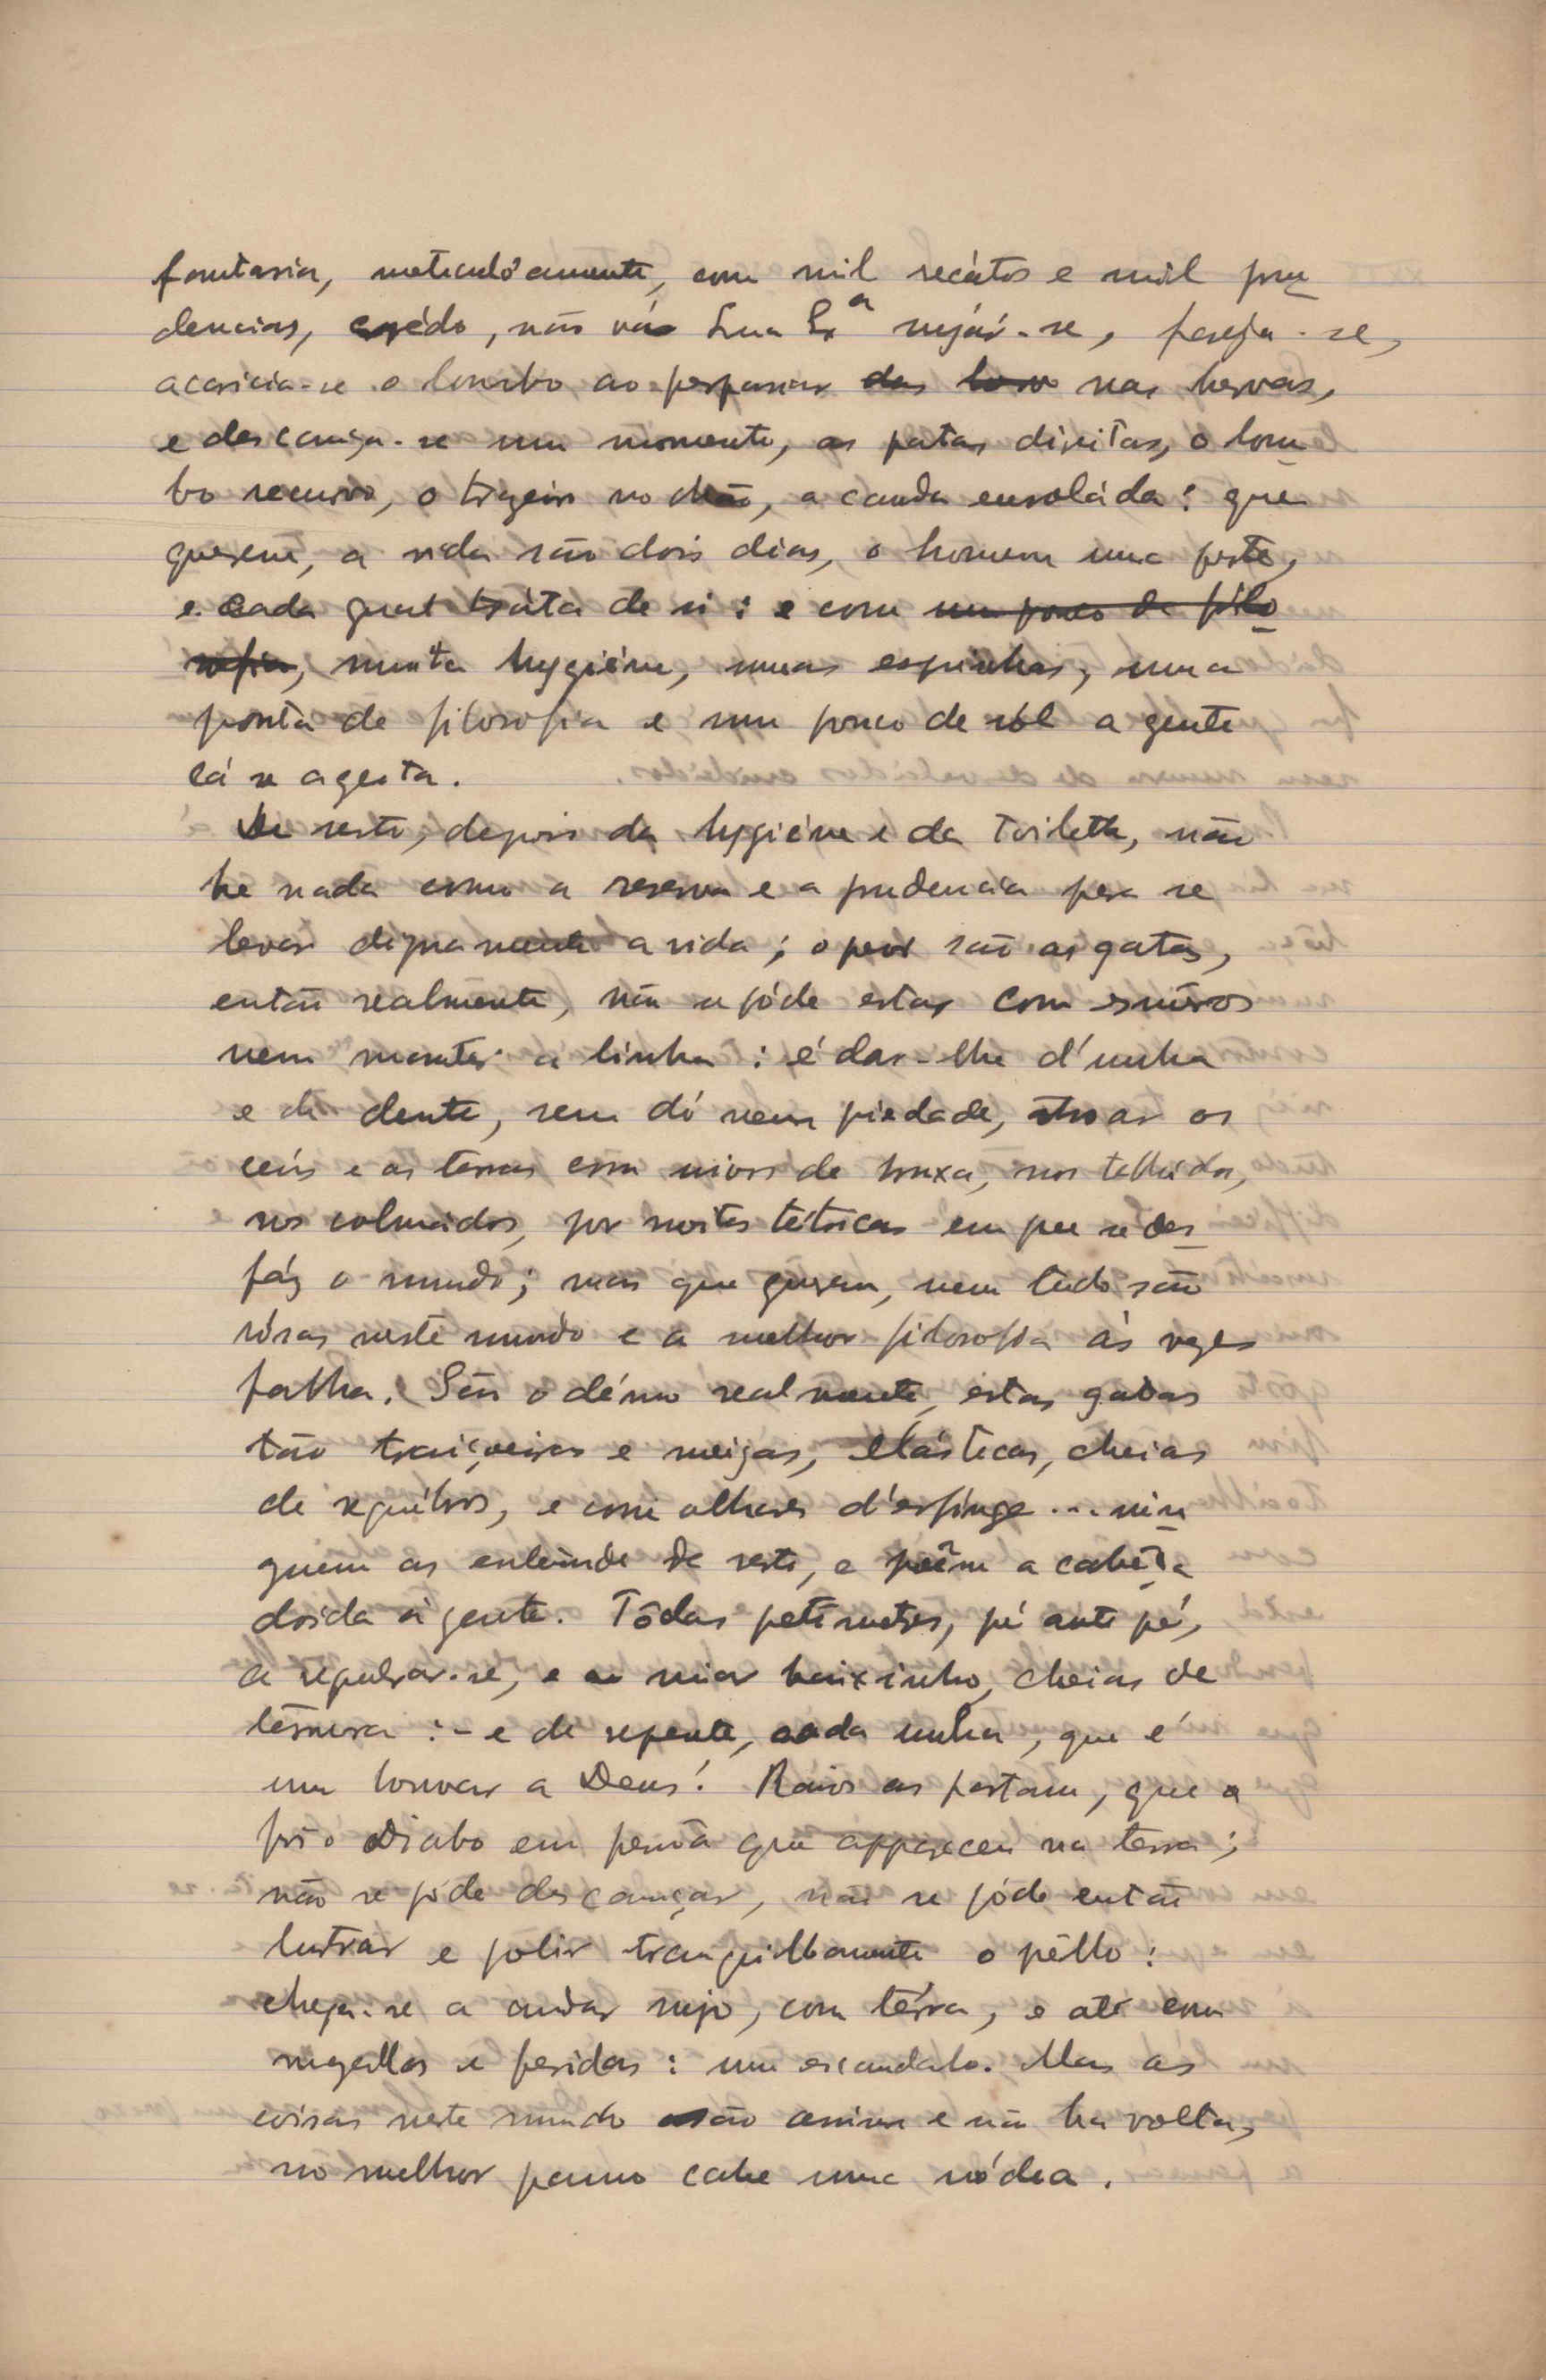 fantasia, meticulósamente, com mil recátos e mil pru
dencias, crédo, não vá Sua Exª sujár-se, peseja-se,
acaricia-se o lombo ao perpassar das nas hervas,
e descança-se um momento, as patas direitas, o lom
bo recurvo, o trazeiro no chão, a cauda enroláda: que
querem, a vida são dois dias, o homem uma peste,
e cada qual tráta de si: e com um pouco de filo
sofia, muita hygiéne, umas espinhas, uma
ponta de filosofia e um pouco de sól a gente
lá se ageita.
De resto, depois da hygiéne e da toilette, não
ha nada como a reserva e a prudencia para se
levar dignamente a vida; o peor são as gatas,
então realmente, não se póde estar com esméros
nem manter a linha: é dar-lhe d'unha
e de dente, sem dó nem piedade, atroar os
ceús e as terras com mios de bruxa, nos telhados,
nos colmados, por noites tétricas em que se des
fáz o mundo; mas que querem, nem tudo são
rósas neste mundo e a melhor filosofia ás vezes
falha. São o démo realmente, estas gatas
tão traiçoeiras e meigas, elásticas, cheias
de requébros, e com olhares d'esfinge... nin
guem as entende de resto, e põem a cabeça
doida á gente. Tôdas petimetres, pé ante pé,
a espedrar-se, e a miar baixinho, cheias de
ternura:- e de repente, cada unha, que é
um louvar a Deus! Raios as partam, que
foi o Diabo em pessoa que appareceu na terra;
não se póde descançar, não se póde então
lustrar e polir tranquillamente o pêllo:
chega-se a andar sujo, com térra, e até com
mazellas e feridas: um escandalo. Mas as
coisas neste mundo são assim e não ha volta,
no melhor panno cahe uma nódoa.